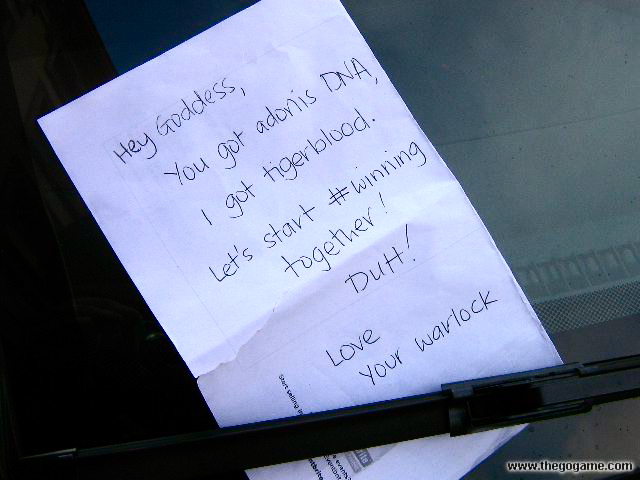 Hey Goddess,
You got adonis DNA,
I got tigerblood.
Let's start #winning
together!
DUH!
Love
Your warlock
Start selling
www.thegogame.com